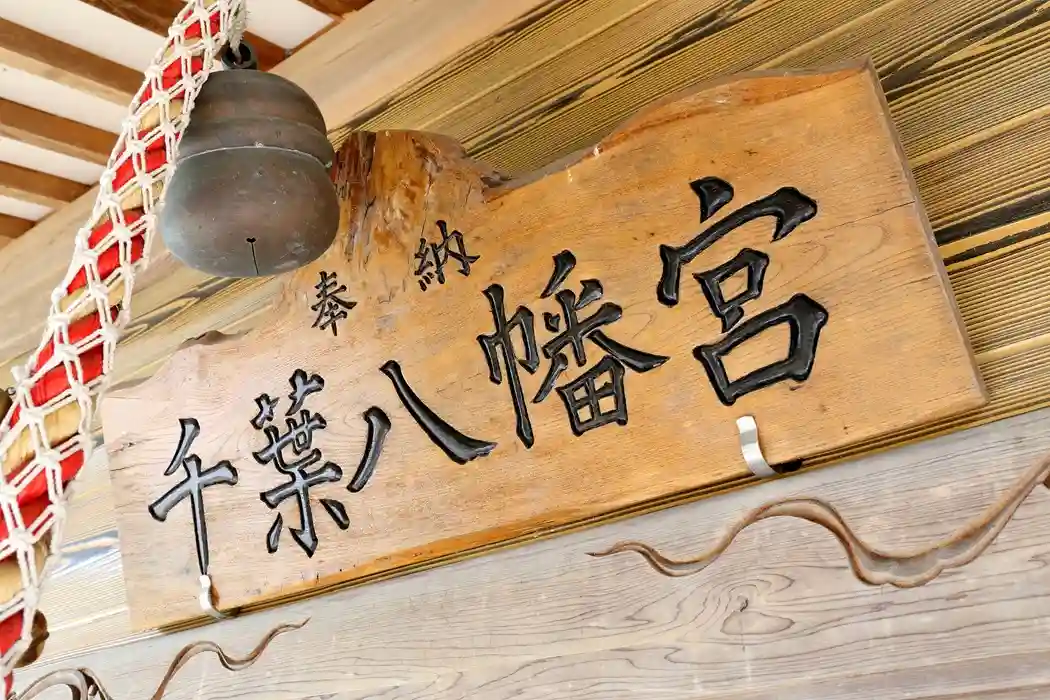 奉納
千葉八幡宮